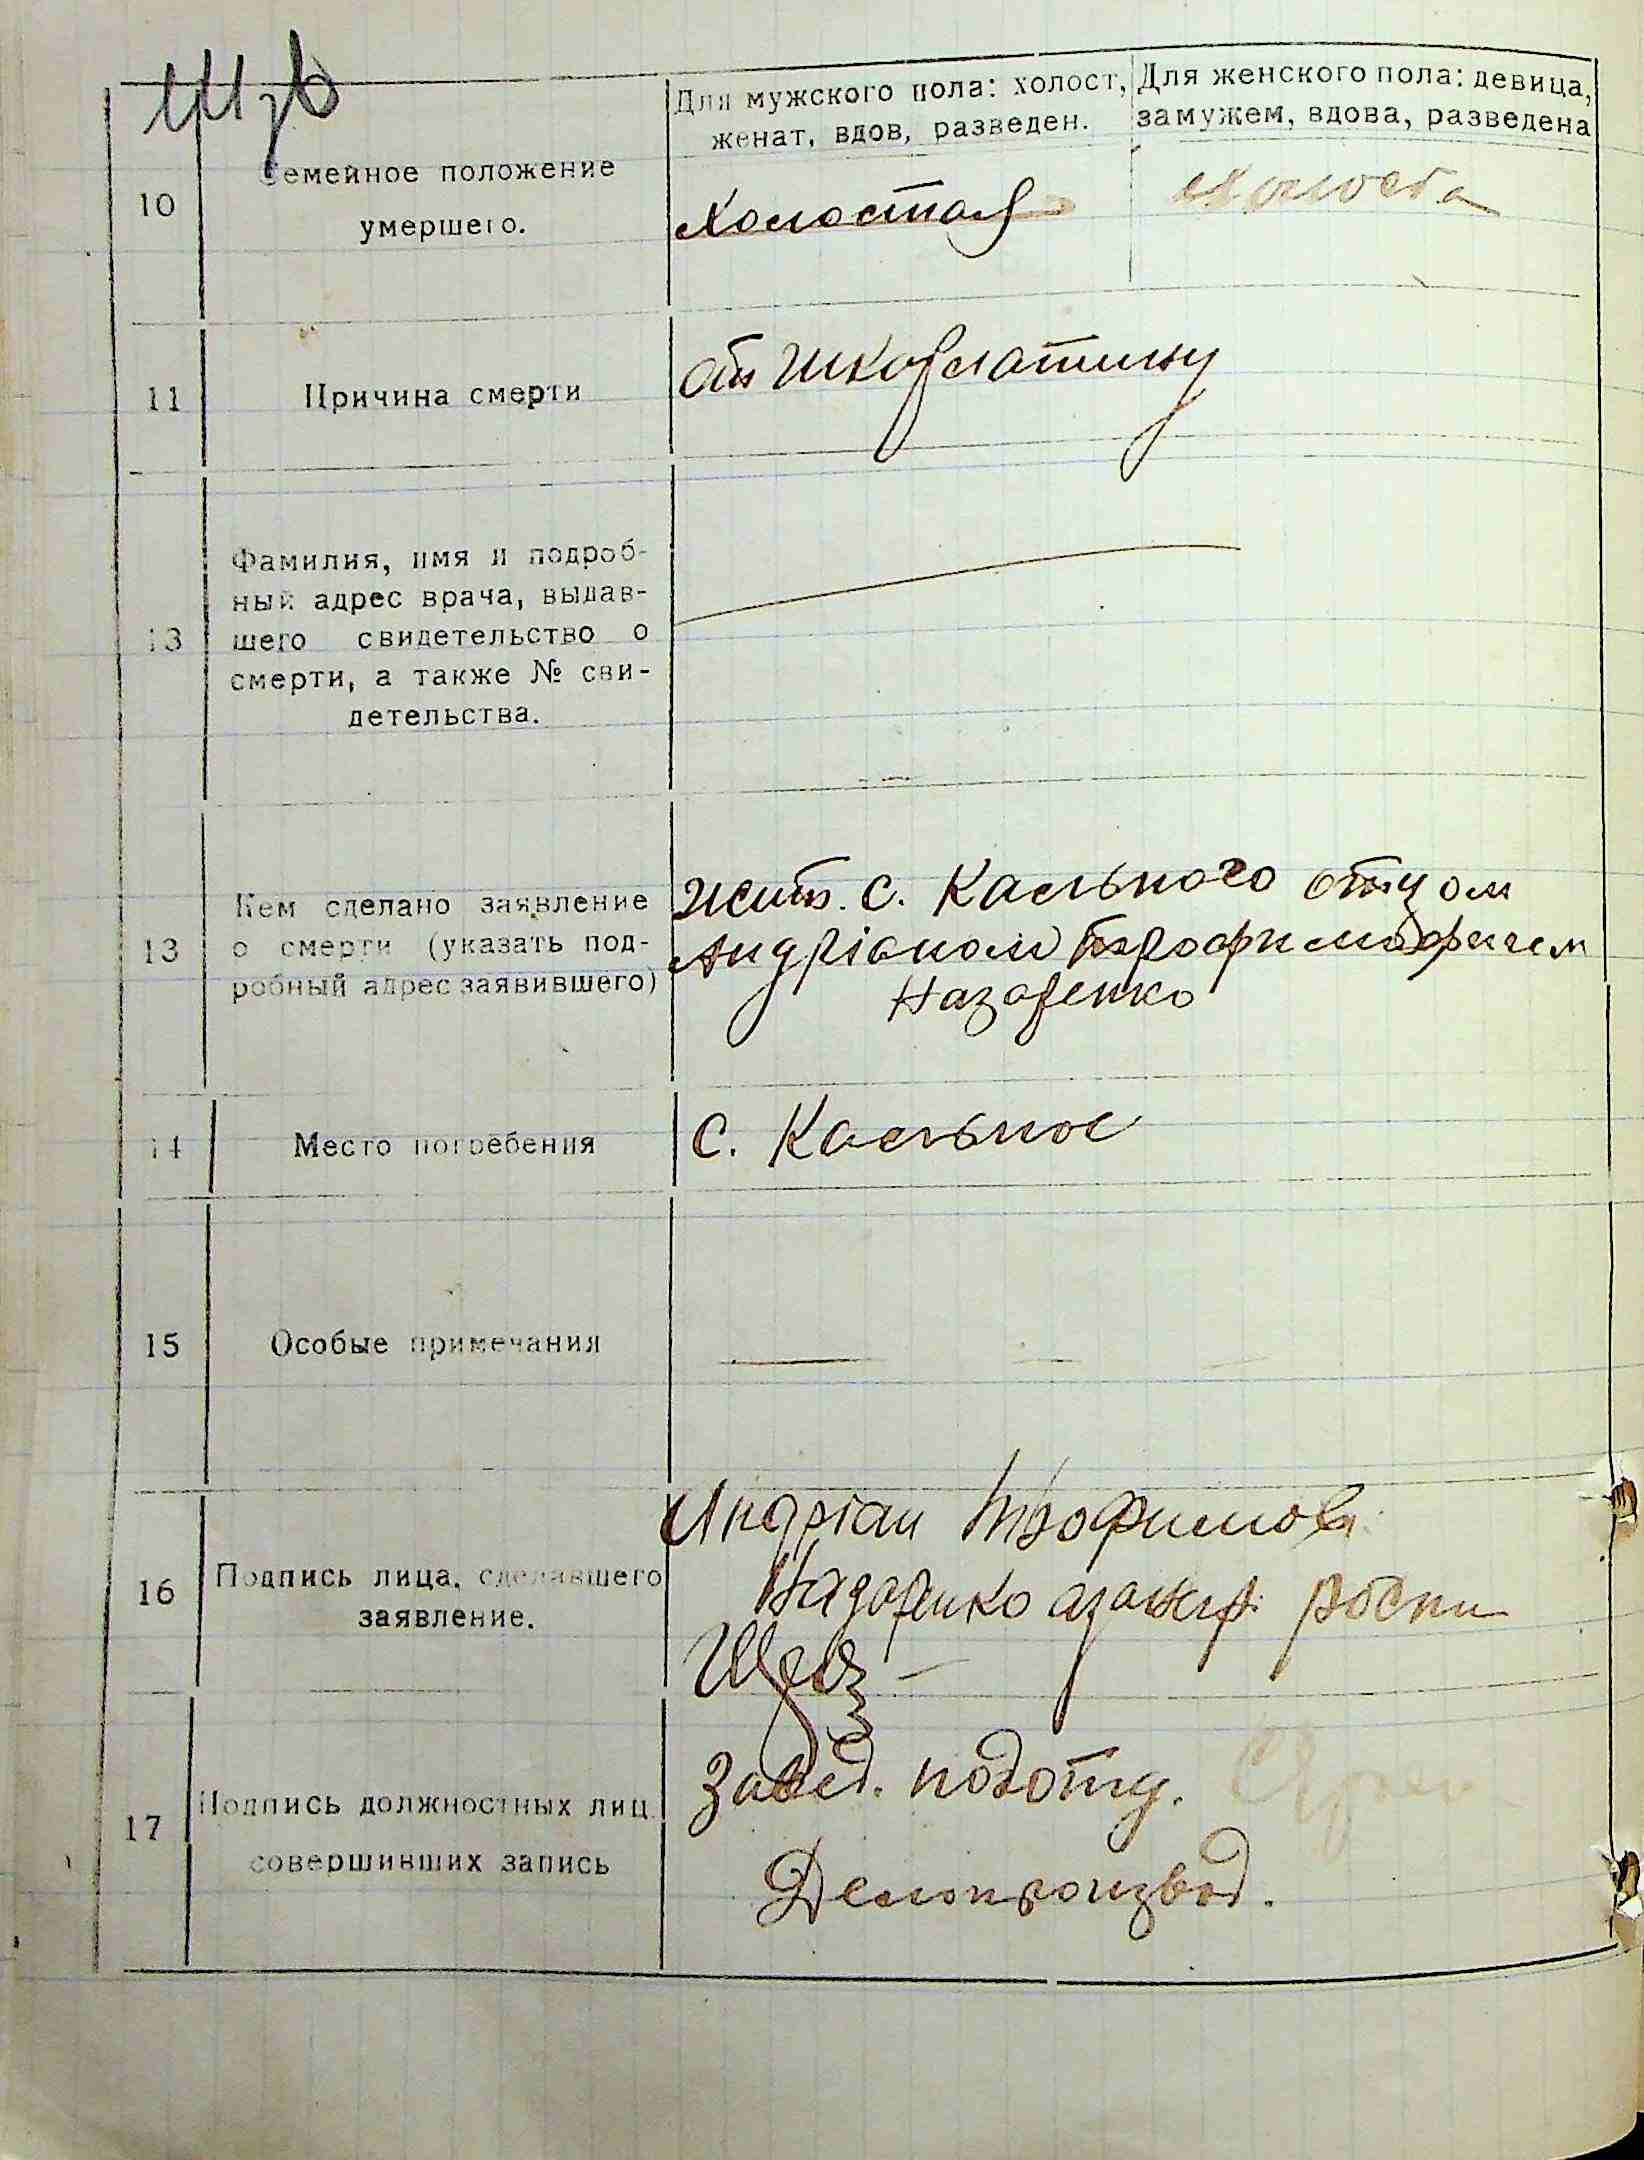 Для мужского пола: холост,
женат, вдов, разведен.
Для женского пола: девица,
замужем, вдова, разведена
10
Семейное положение
умершего.
холостая
холоста
11
Причина смерти
от шкарлатины
13
Фамилия, имя и подроб-
ный адрес врача, выдав-
шего свидетельство о
смерти, а также № сви-
детельства.
13
Кем сделано заявление
о смерти (указать под-
робный адрес заявившего)
жит. с. Касьного отцом
Андріаном Трофимофичем
Назаренко
14
Место погребения
с. Касьное
15
Особые примечания
16
Подпись лица, сделавшего
заявление.
Андріан Трофимов
Назаренко
17
Подпись должностных лиц
совершивших запись
Завед. подотд.
Делопроизвод.